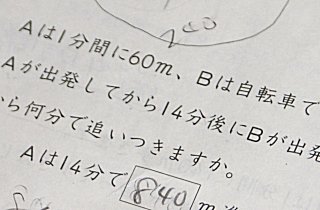 Aは1分間に60m、Bは自転車で
Aが出発してから14分後にBが出発
から何分で追いつきますか。
Aは14分で 840 m